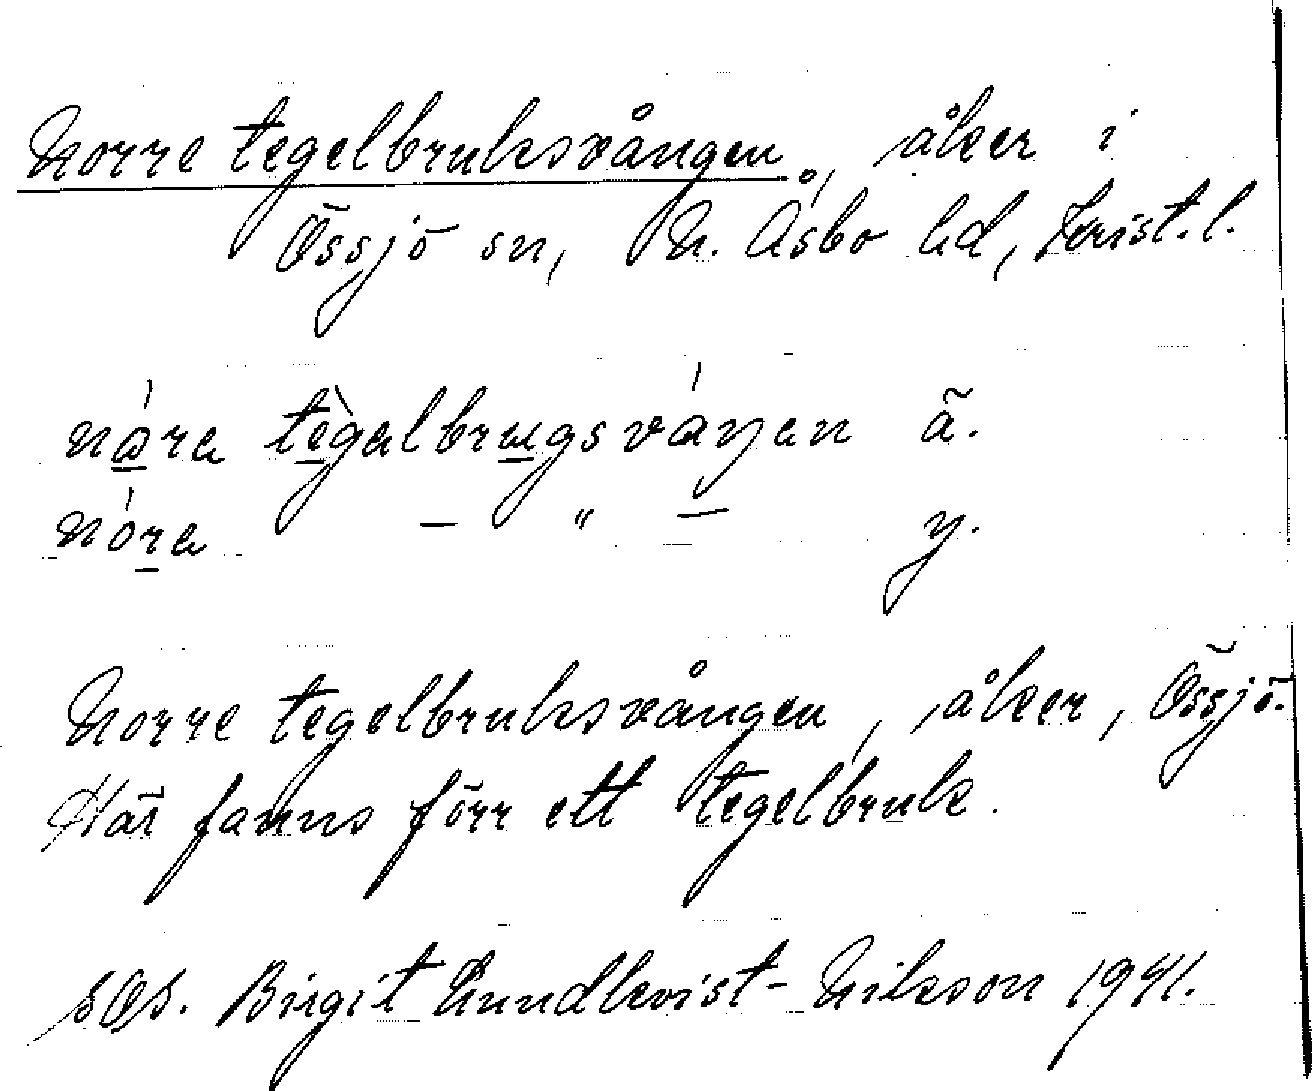 Norre tegelbruksvången, åker i
Össjö sn, N. Åsbo hd, Krist. l.
nára tègalbrugsváŋan ä.
nóra — " — y.
Norre tegelbruksvången, åker, Össjö.
Här fanns förr ett tegelbruk.
Birgit Lundkvist-Nilsson 1941.